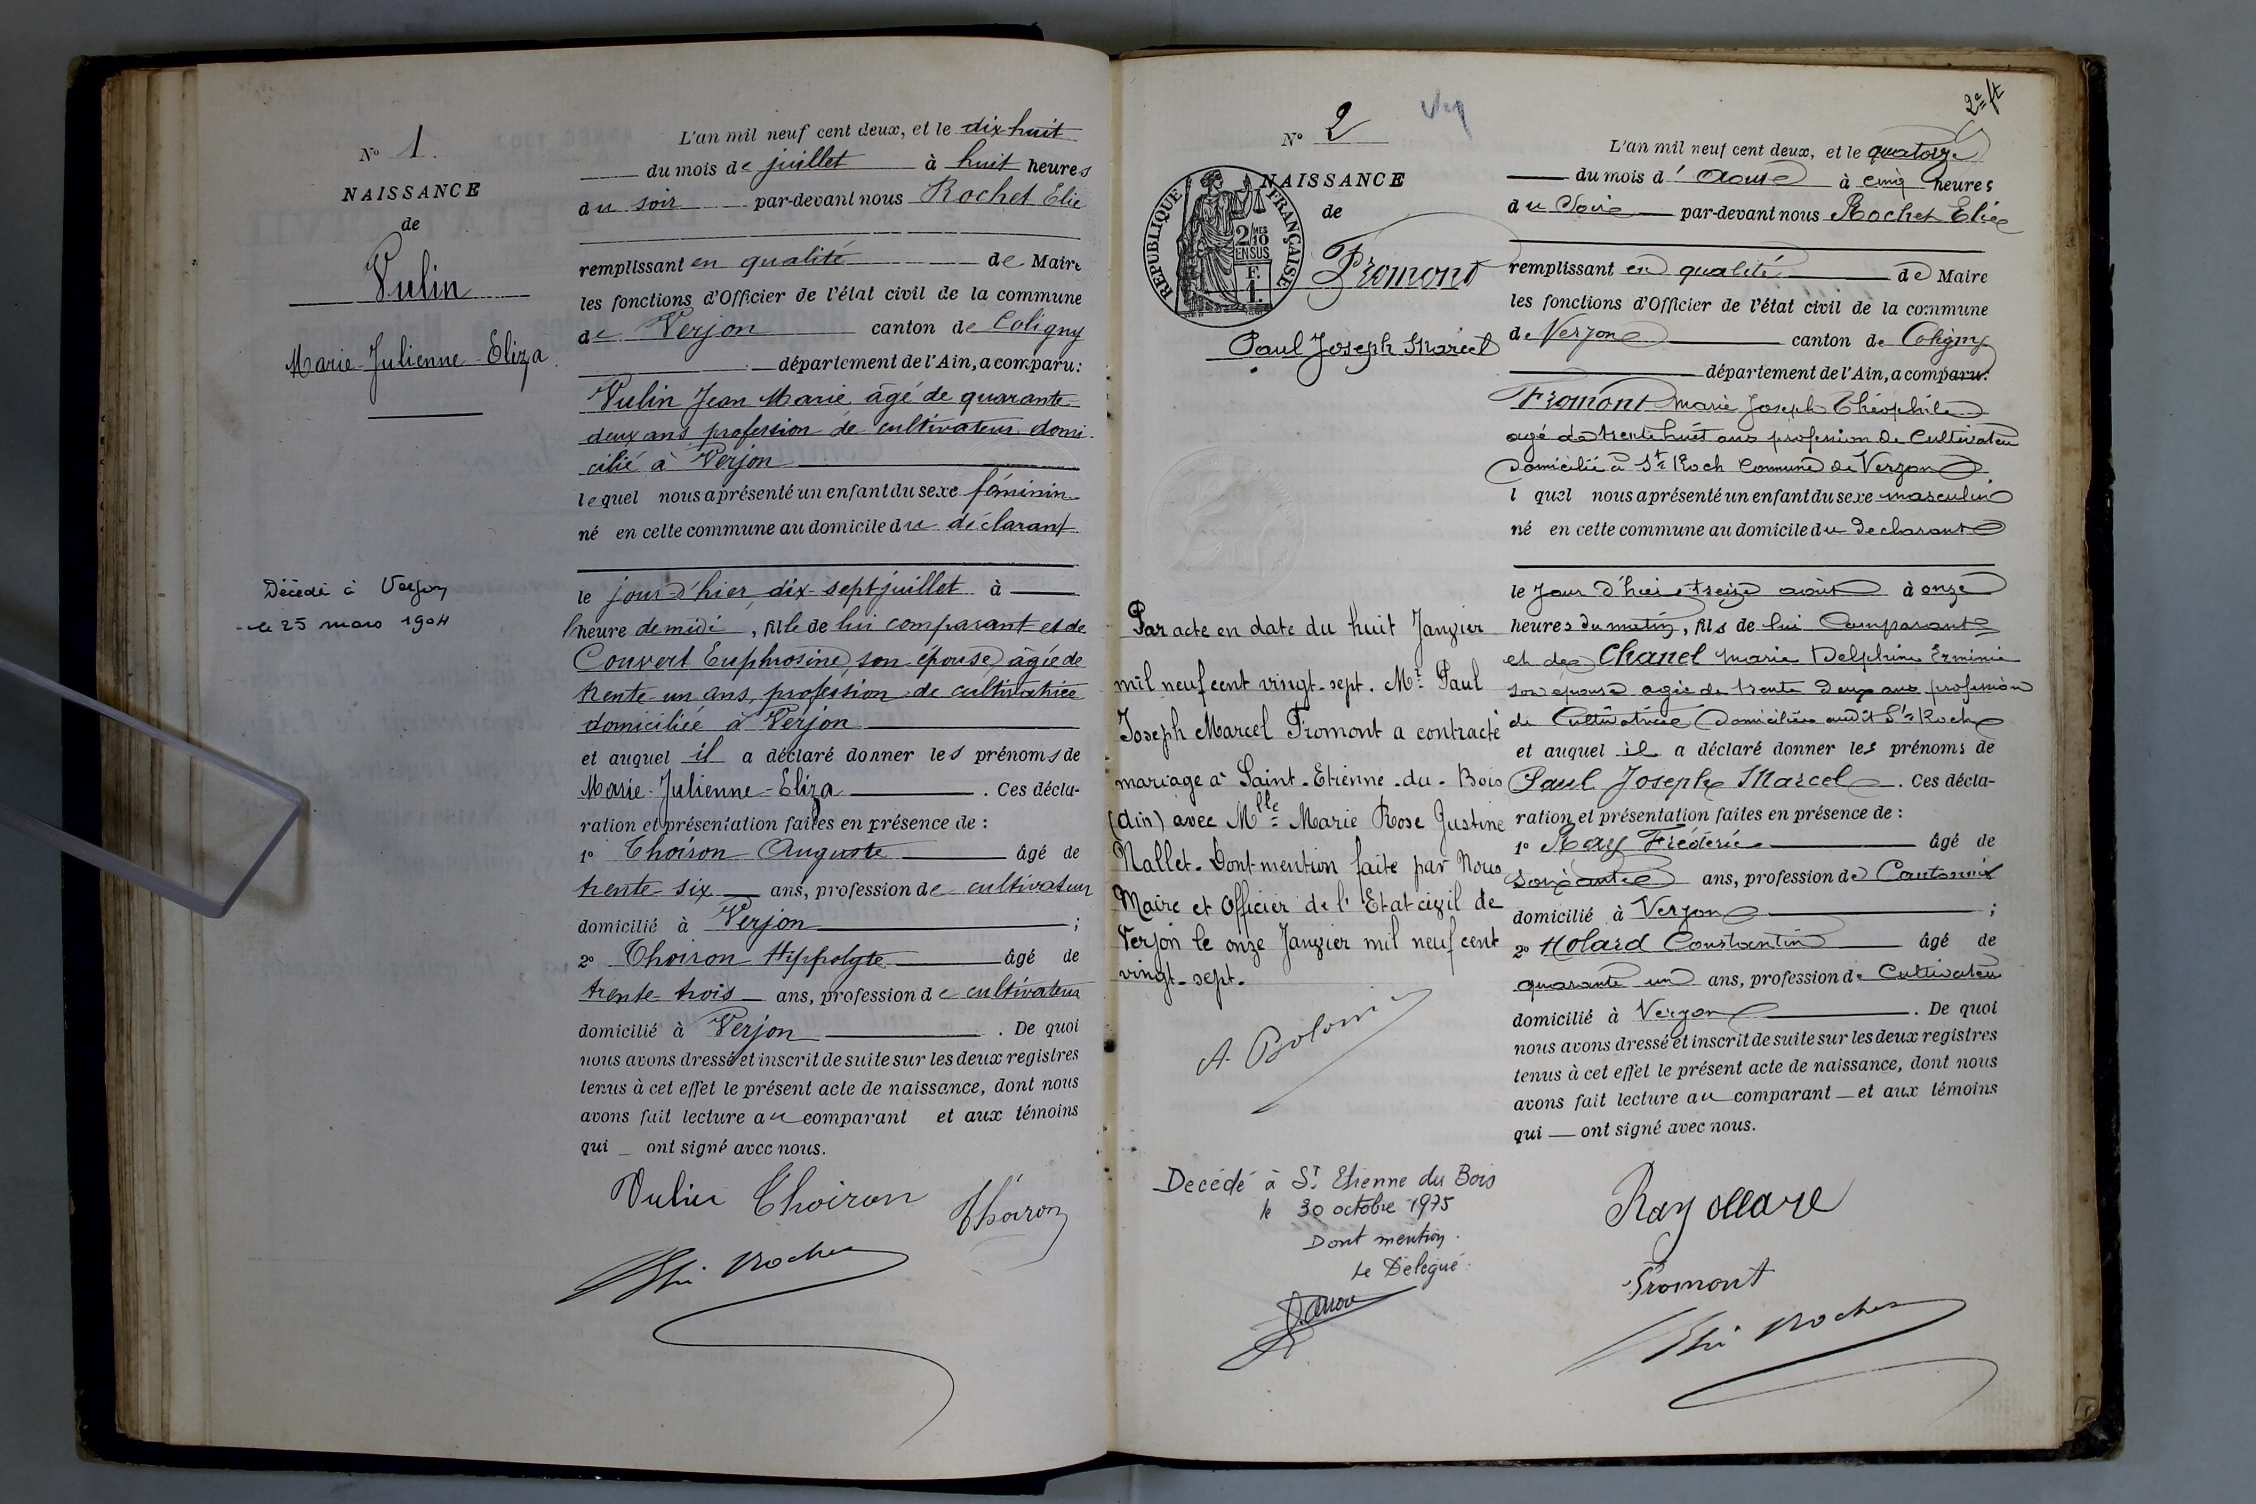 N° 1.
NAISSANCE
de
Vulin
Marie-Julienne-Eliza
Décédé à Verjon
le 25 mars 1904
L'an mil neuf cent deux, et le dix-huit
du mois de juillet à huit heures
du soir par-devant nous Rochet Elie
remplissant en qualité de Maire
les fonctions d'Officier de l'état civil de la commune
de Verjon canton de Coligny
département de l'Ain, a comparu:
Vulin Jean Marie âgé de quarante
deux ans profession de cultivateur domi-
cilié à Verjon
lequel nous a présenté un enfant du sexe féminin
né en cette commune au domicile du déclarant
le jour d'hier dix-sept juillet à
heure de midi, fille de lui comparant et de
Couvert Euphrosine son épouse âgée de
trente-un ans, profession de cultivatrice
domiciliée à Verjon
et auquel il a déclaré donner les prénoms de
Marie-Julienne-Eliza. Ces décla-
ration et présentation faites en présence de :
1° Thoiron Auguste âgé de
trente-six ans, profession de cultivateur
domicilié à Verjon ;
2° Thoiron Hippolyte âgé de
trente-trois ans, profession de cultivateur
domicilié à Verjon. De quoi
nous avons dressé et inscrit de suite sur les deux registres
tenus à cet effet le présent acte de naissance, dont nous
avons fait lecture au comparant et aux témoins
qui _ ont signé avec nous.
Vulin Thoiron Thoiron
Elie Rochet
2e ft
N° 2
NAISSANCE
de
REPUBLIQUE FRANÇAISE
2/10 MES
EN SUS
F.
1.
Fromont
Paul Joseph Marcel
Par acte en date du huit Janvier
mil neuf cent vingt-sept. Mr Paul
Joseph Marcel Fromont a contracté
mariage à Saint-Etienne-du-Bois
(Ain) avec Mlle Marie Rose Justine
Nallet. Dont mention faite par Nous
Maire et Officier de l'Etat civil de
Verjon le onze Janvier mil neuf cent
vingt-sept.
Decédé à St Etienne du Bois
le 30 octobre 1975
Dont mention.
Le Délégué.
L'an mil neuf cent deux, et le quatorze
du mois d'Aout à cinq heures
du Soir par-devant nous Rochet Elie
remplissant en qualité de Maire
les fonctions d'Officier de l'état civil de la commune
de Verjon canton de Coligny
département de l'Ain, a comparu:
Fromont Marie Joseph Théophile
agé de trente huit ans profession de Cultivateu
Domicilié à St Roch Commune de Verjon
l quel nous a présenté un enfant du sexe masculin
né en cette commune au domicile du declarant
le Jour d'hier treize août à onze
heures du matin, fils de lui Comparant
et de Chanel Marie Delphine Erminie
son épouse agée de trente deux ans profession
de Cultivatrice Domiciliée audit St Roch
et auquel il a déclaré donner les prénoms de
Paul Joseph Marcel. Ces décla-
ration et présentation faites en présence de :
1° Ray Frédéric âgé de
soixante ans, profession de Cantonnier
domicilié à Verjon ;
2° Molard Constantin âgé de
quarante un ans, profession de Cultivateu
domicilié à Verjon. De quoi
nous avons dressé et inscrit de suite sur les deux registres
tenus à cet effet le présent acte de naissance, dont nous
avons fait lecture au comparant _ et aux témoins
qui _ ont signé avec nous.
Ray
Fromont
Elie Rochet